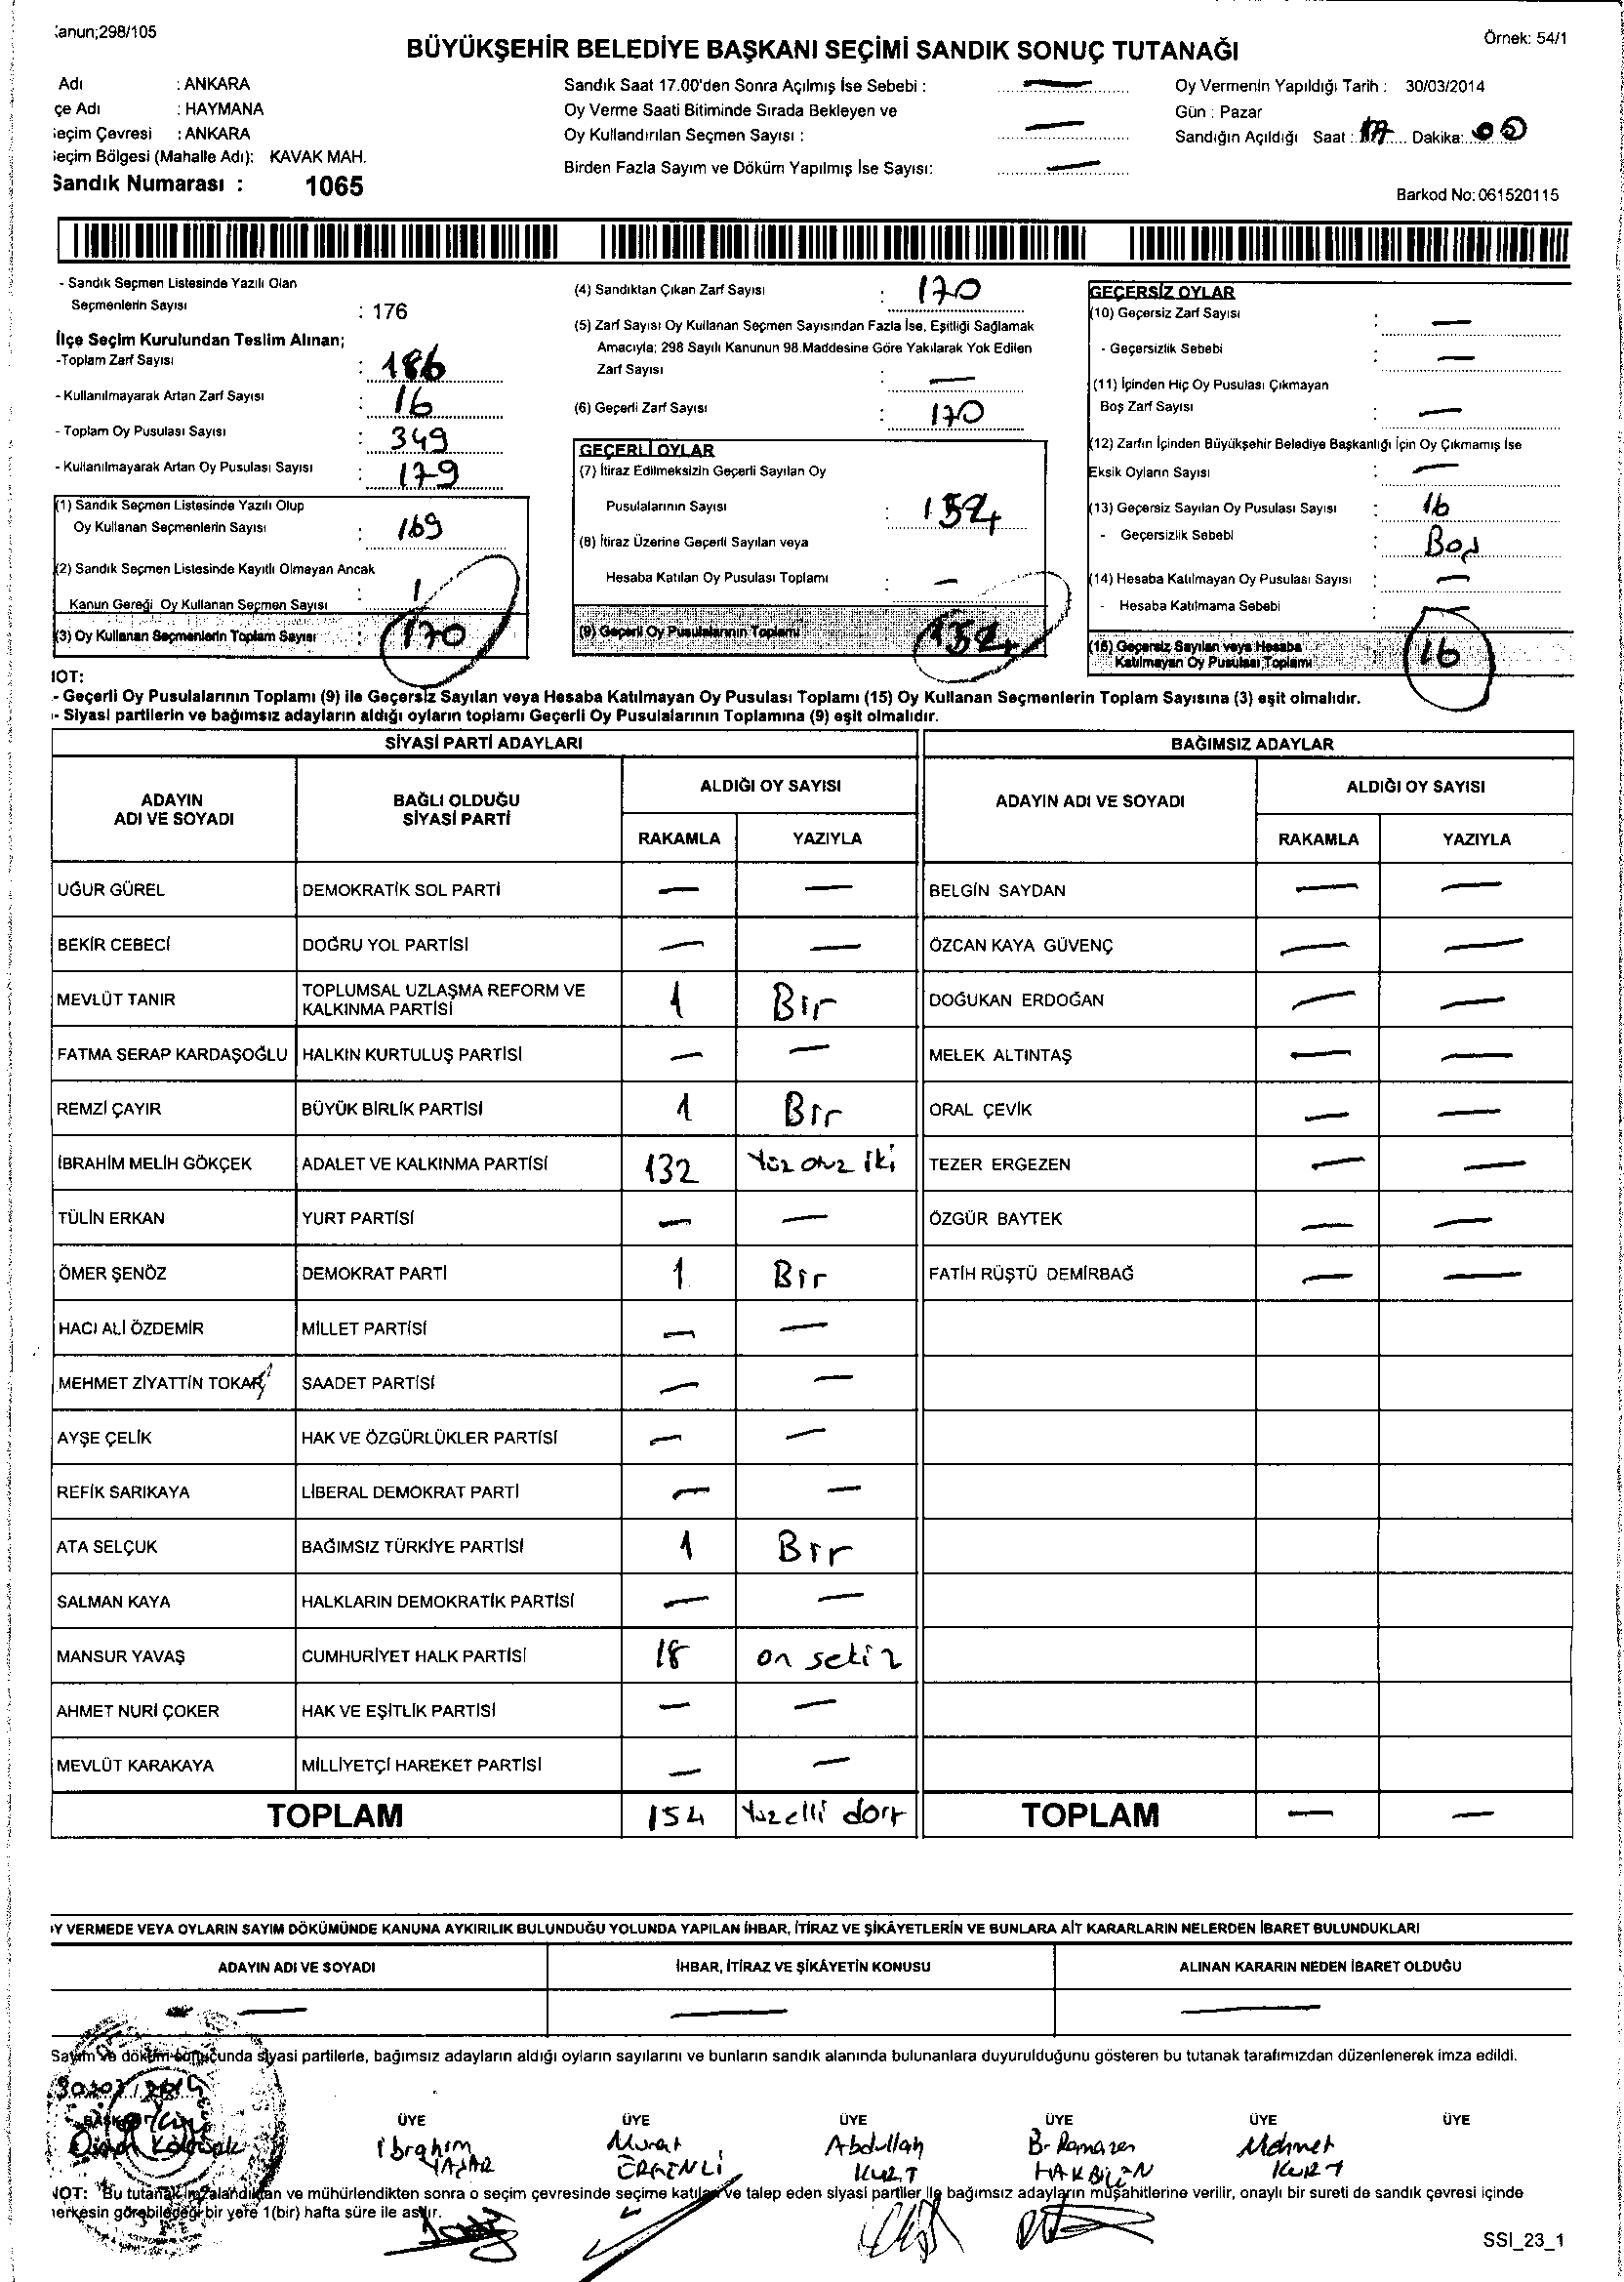 anun;298/105
Örnek: 54/1
BÜYÜKŞEHİR BELEDİYE BAŞKANI SEÇİMİ SANDIK SONUÇ TUTANAĞI
Adı : ANKARA
çe Adı : HAYMANA
eçim Çevresi : ANKARA
eçim Bölgesi (Mahalle Adı): KAVAK MAH.
Sandık Numarası : 1065
Sandık Saat 17.00'den Sonra Açılmış İse Sebebi : —
Oy Verme Saati Bitiminde Sırada Bekleyen ve
Oy Kullandırılan Seçmen Sayısı : —
Birden Fazla Sayım ve Döküm Yapılmış İse Sayısı: —
Oy Vermenin Yapıldığı Tarih : 30/03/2014
Gün : Pazar
Sandığın Açıldığı Saat : 17 Dakika: 00
Barkod No: 061520115
- Sandık Seçmen Listesinde Yazılı Olan
Seçmenlerin Sayısı : 176
İlçe Seçim Kurulundan Teslim Alınan;
-Toplam Zarf Sayısı : 186
- Kullanılmayarak Artan Zarf Sayısı : 16
- Toplam Oy Pusulası Sayısı : 349
- Kullanılmayarak Artan Oy Pusulası Sayısı : 179
(1) Sandık Seçmen Listesinde Yazılı Olup
Oy Kullanan Seçmenlerin Sayısı : 169
(2) Sandık Seçmen Listesinde Kayıtlı Olmayan Ancak
Kanun Gereği Oy Kullanan Seçmen Sayısı : 1
(3) Oy Kullanan Seçmenlerin Toplam Sayısı : 170
(4) Sandıktan Çıkan Zarf Sayısı : 170
(5) Zarf Sayısı Oy Kullanan Seçmen Sayısından Fazla İse, Eşitliği Sağlamak
Amacıyla; 298 Sayılı Kanunun 98.Maddesine Göre Yakılarak Yok Edilen
Zarf Sayısı : —
(6) Geçerli Zarf Sayısı : 170
GEÇERLİ OYLAR
(7) İtiraz Edilmeksizin Geçerli Sayılan Oy
Pusulalarının Sayısı : 154
(8) İtiraz Üzerine Geçerli Sayılan veya
Hesaba Katılan Oy Pusulası Toplamı : —
(9) Geçerli Oy Pusulalarının Toplamı 154
GEÇERSİZ OYLAR
(10) Geçersiz Zarf Sayısı : —
- Geçersizlik Sebebi : —
(11) İçinden Hiç Oy Pusulası Çıkmayan
Boş Zarf Sayısı : —
(12) Zarfın İçinden Büyükşehir Belediye Başkanlığı İçin Oy Çıkmamış İse
Eksik Oyların Sayısı : —
(13) Geçersiz Sayılan Oy Pusulası Sayısı : 16
- Geçersizlik Sebebi : Boş
(14) Hesaba Katılmayan Oy Pusulası Sayısı : —
- Hesaba Katılmama Sebebi : —
(15) Geçersiz Sayılan veya Hesaba
Katılmayan Oy Pusulası Toplamı : 16
NOT:
- Geçerli Oy Pusulalarının Toplamı (9) ile Geçersiz Sayılan veya Hesaba Katılmayan Oy Pusulası Toplamı (15) Oy Kullanan Seçmenlerin Toplam Sayısına (3) eşit olmalıdır.
- Siyasi partilerin ve bağımsız adayların aldığı oyların toplamı Geçerli Oy Pusulalarının Toplamına (9) eşit olmalıdır.
SİYASİ PARTİ ADAYLARI BAĞIMSIZ ADAYLAR
ADAYIN ADI VE SOYADI BAĞLI OLDUĞU SİYASİ PARTİ ALDIĞI OY SAYISI ADAYIN ADI VE SOYADI ALDIĞI OY SAYISI
RAKAMLA YAZIYLA RAKAMLA YAZIYLA
UĞUR GÜREL DEMOKRATİK SOL PARTİ — — BELGİN SAYDAN — —
BEKİR CEBECİ DOĞRU YOL PARTİSİ — — ÖZCAN KAYA GÜVENÇ — —
MEVLÜT TANIR TOPLUMSAL UZLAŞMA REFORM VE KALKINMA PARTİSİ 1 Bir DOĞUKAN ERDOĞAN — —
FATMA SERAP KARDAŞOĞLU HALKIN KURTULUŞ PARTİSİ — — MELEK ALTINTAŞ — —
REMZİ ÇAYIR BÜYÜK BİRLİK PARTİSİ 1 Bir ORAL ÇEVİK — —
İBRAHİM MELİH GÖKÇEK ADALET VE KALKINMA PARTİSİ 132 Yüz otuz iki TEZER ERGEZEN — —
TÜLİN ERKAN YURT PARTİSİ — — ÖZGÜR BAYTEK — —
ÖMER ŞENÖZ DEMOKRAT PARTİ 1 Bir FATİH RÜŞTÜ DEMİRBAĞ — —
HACI ALİ ÖZDEMİR MİLLET PARTİSİ — —
MEHMET ZİYATTİN TOKAR SAADET PARTİSİ — —
AYŞE ÇELİK HAK VE ÖZGÜRLÜKLER PARTİSİ — —
REFİK SARIKAYA LİBERAL DEMOKRAT PARTİ — —
ATA SELÇUK BAĞIMSIZ TÜRKİYE PARTİSİ 1 Bir
SALMAN KAYA HALKLARIN DEMOKRATİK PARTİSİ — —
MANSUR YAVAŞ CUMHURİYET HALK PARTİSİ 18 on sekiz
AHMET NURİ ÇOKER HAK VE EŞİTLİK PARTİSİ — —
MEVLÜT KARAKAYA MİLLİYETÇİ HAREKET PARTİSİ — —
TOPLAM 154 Yüzelli dört TOPLAM — —
Y VERMEDE VEYA OYLARIN SAYIM DÖKÜMÜNDE KANUNA AYKIRILIK BULUNDUĞU YOLUNDA YAPILAN İHBAR, İTİRAZ VE ŞİKÂYETLERİN VE BUNLARA AİT KARARLARIN NELERDEN İBARET BULUNDUKLARI
ADAYIN ADI VE SOYADI İHBAR, İTİRAZ VE ŞİKÂYETİN KONUSU ALINAN KARARIN NEDEN İBARET OLDUĞU
— — —
Sayım ve döküm sonucunda siyasi partilerle, bağımsız adayların aldığı oyların sayılarını ve bunların sandık alanında bulunanlara duyurulduğunu gösteren bu tutanak tarafımızdan düzenlenerek imza edildi.
30/03/2014
BAŞKAN ÜYE ÜYE ÜYE ÜYE ÜYE ÜYE
İbrahim Murat Abdullah B. Ramazan Mehmet
YAŞAR ERGENLİ KURT HAKBİLEN KURT
NOT: Bu tutanak imzalandıktan ve mühürlendikten sonra o seçim çevresinde seçime katılan ve talep eden siyasi partiler ile bağımsız adayların müşahitlerine verilir, onaylı bir sureti de sandık çevresi içinde
herkesin görebileceği bir yere 1(bir) hafta süre ile asılır.
SSI_23_1